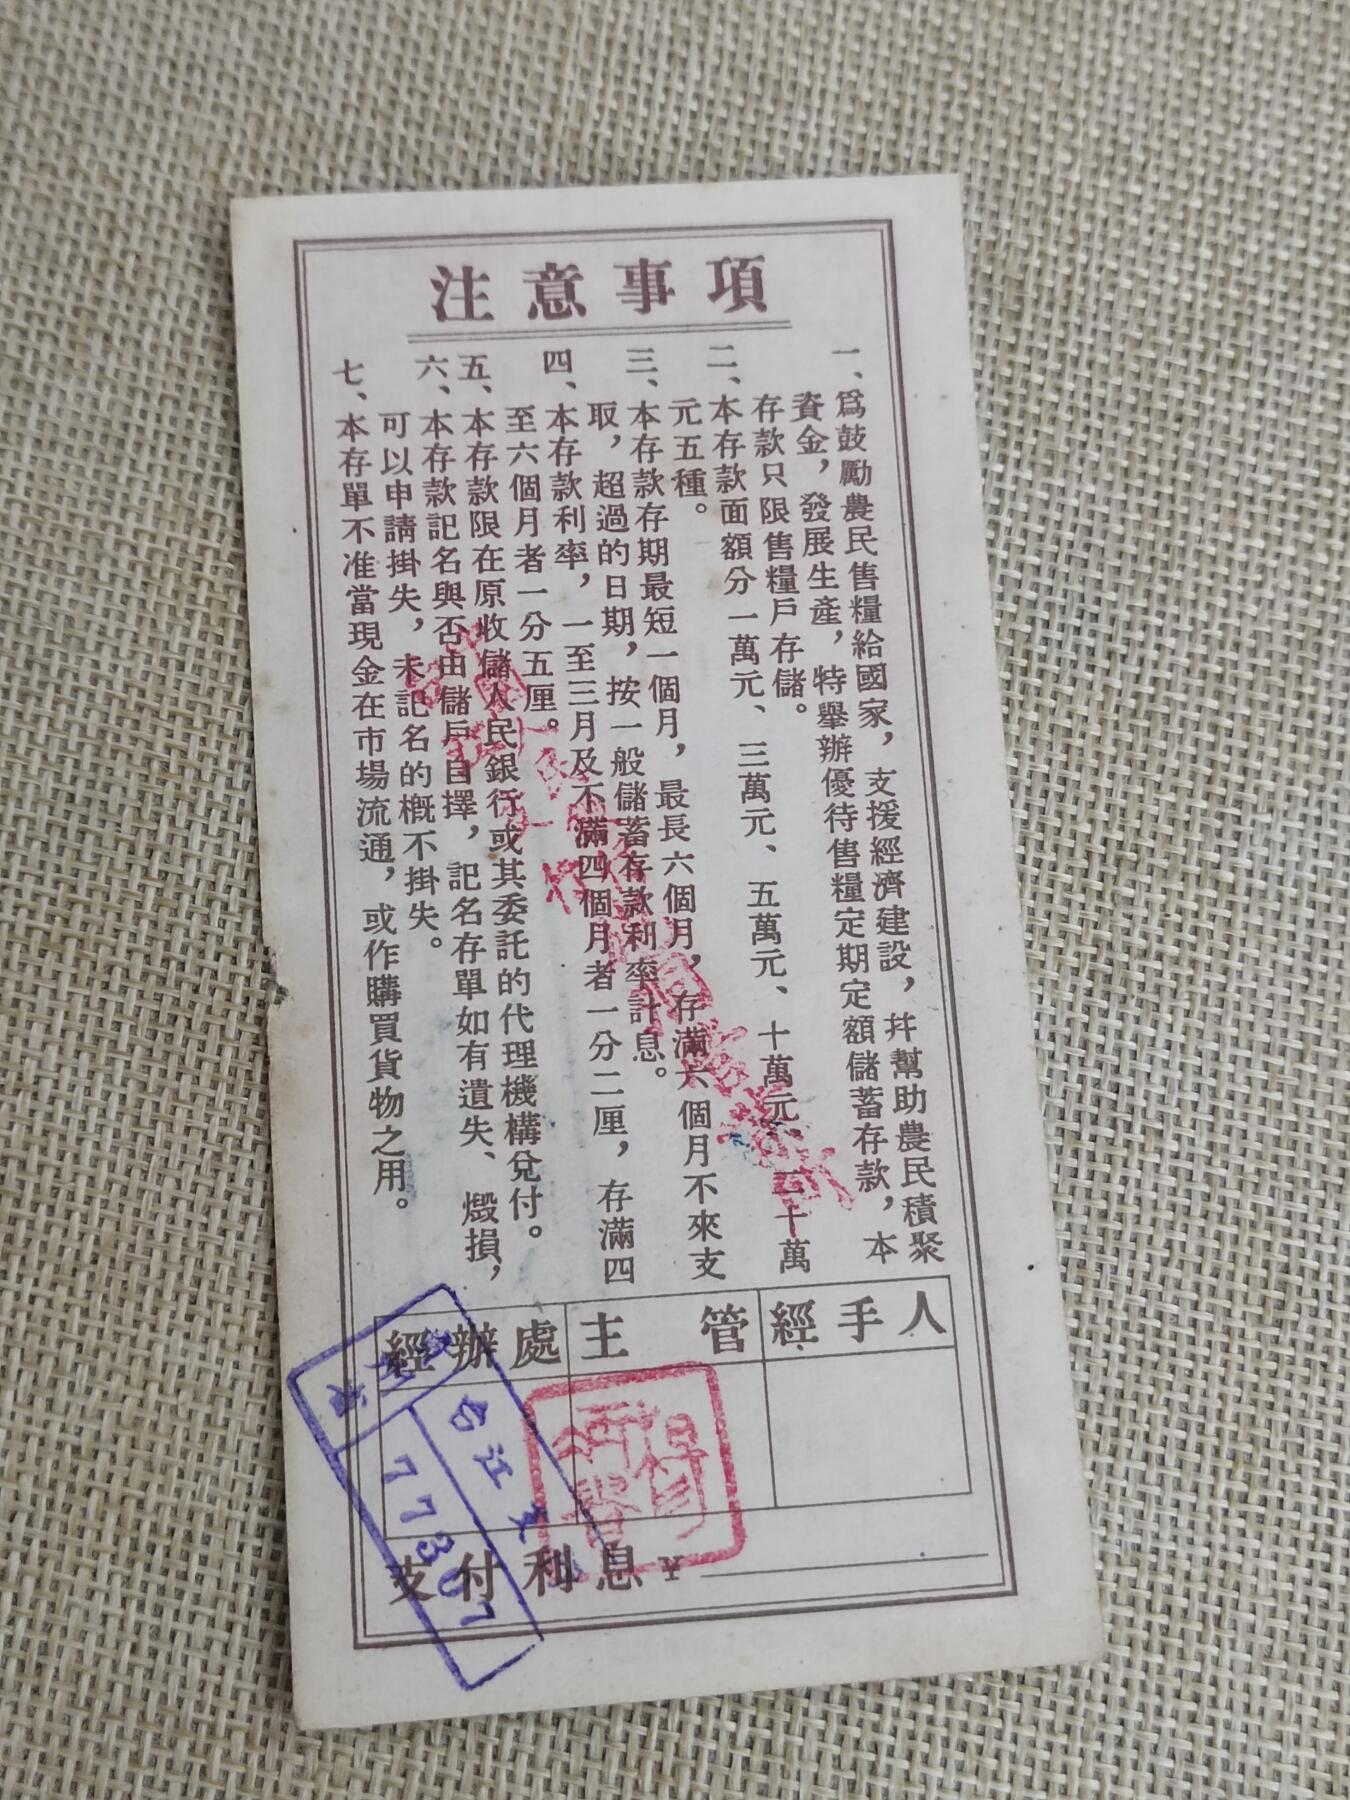 注意事項
一、爲鼓勵農民售糧給國家，支援經濟建設，幷幫助農民積聚
資金，發展生產，特舉辦優待售糧定期定額儲蓄存款，本
存款只限售糧戶存儲。
二、本存款面額分一萬元、三萬元、五萬元、十萬元、二十萬
元五種。
三、本存款存期最短一個月，最長六個月，存滿六個月不來支
取，超過的日期，按一般儲蓄存款利率計息。
四、本存款利率，一至三月及不滿四個月者一分二厘，存滿四
至六個月者一分五厘。
五、本存款限在原收儲人民銀行或其委託的代理機構兌付。
六、本存款記名與否由儲戶自擇，記名存單如有遺失、燬損，
可以申請掛失，未記名的槪不掛失。
七、本存單不准當現金在市場流通，或作購買貨物之用。
經辦處 主管 經手人
台江支
77307
支付利息￥